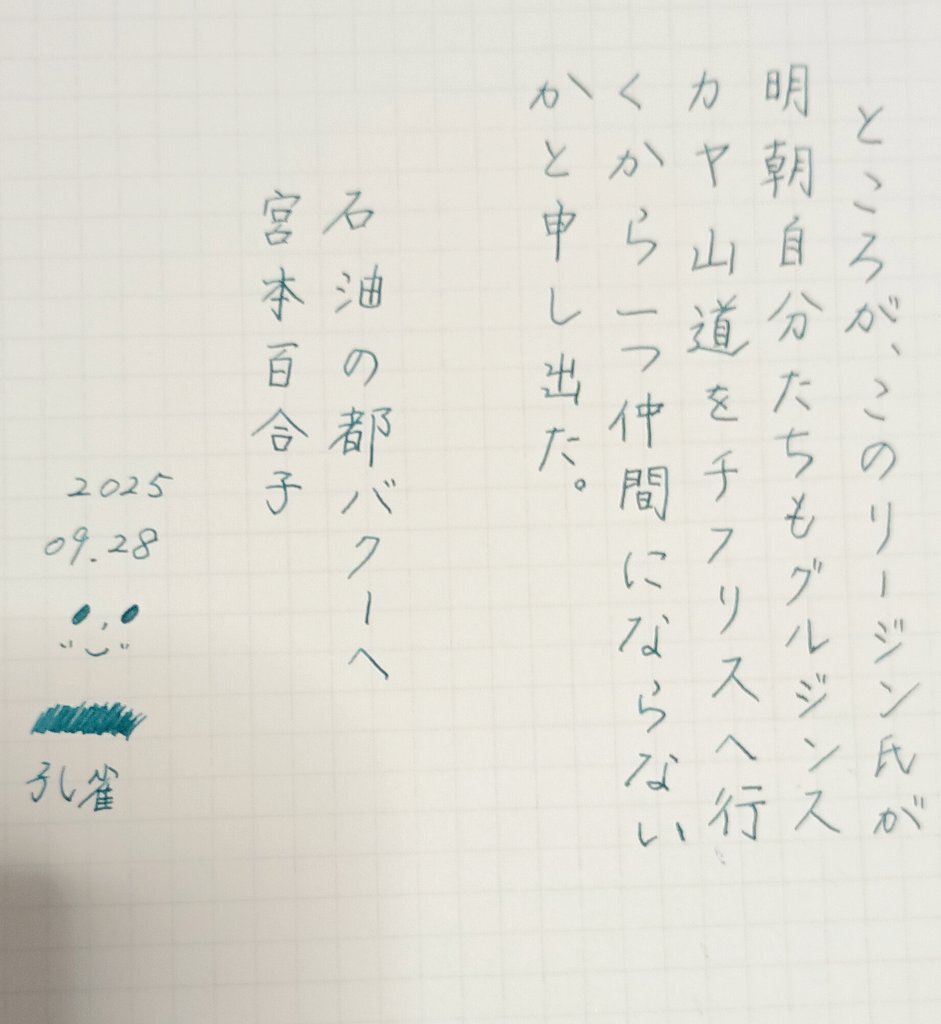 ところが、このリージン氏が
明朝自分たちもグルジンス
カヤ山道をチフリスへ行
くから一つ仲間にならない
かと申し出た。
石油の都バクーへ
宮本百合子
2025
09.28
孔雀